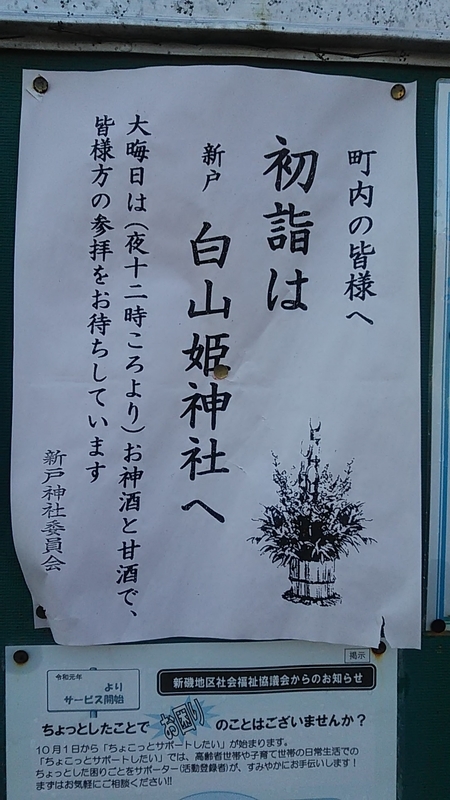 町内の皆様へ
初詣は
新戸 白山姫神社へ
大晦日は(夜十二時ころより)お神酒と甘酒で、
皆様方の参拝をお待ちしています
新戸神社委員会
掲示
令和元年
より
サービス開始
新磯地区社会福祉協議会からのお知らせ
ちょっとしたことでお困りのことはございませんか?
10月1日から「ちょこっとサポートしたい」が始まります。
「ちょこっとサポートしたい」では、高齢者世帯や子育て世帯の日常生活での
ちょっとした困りごとをサポーター(活動登録者)が、すみやかにお手伝いします!
まずはお気軽にご相談ください!!